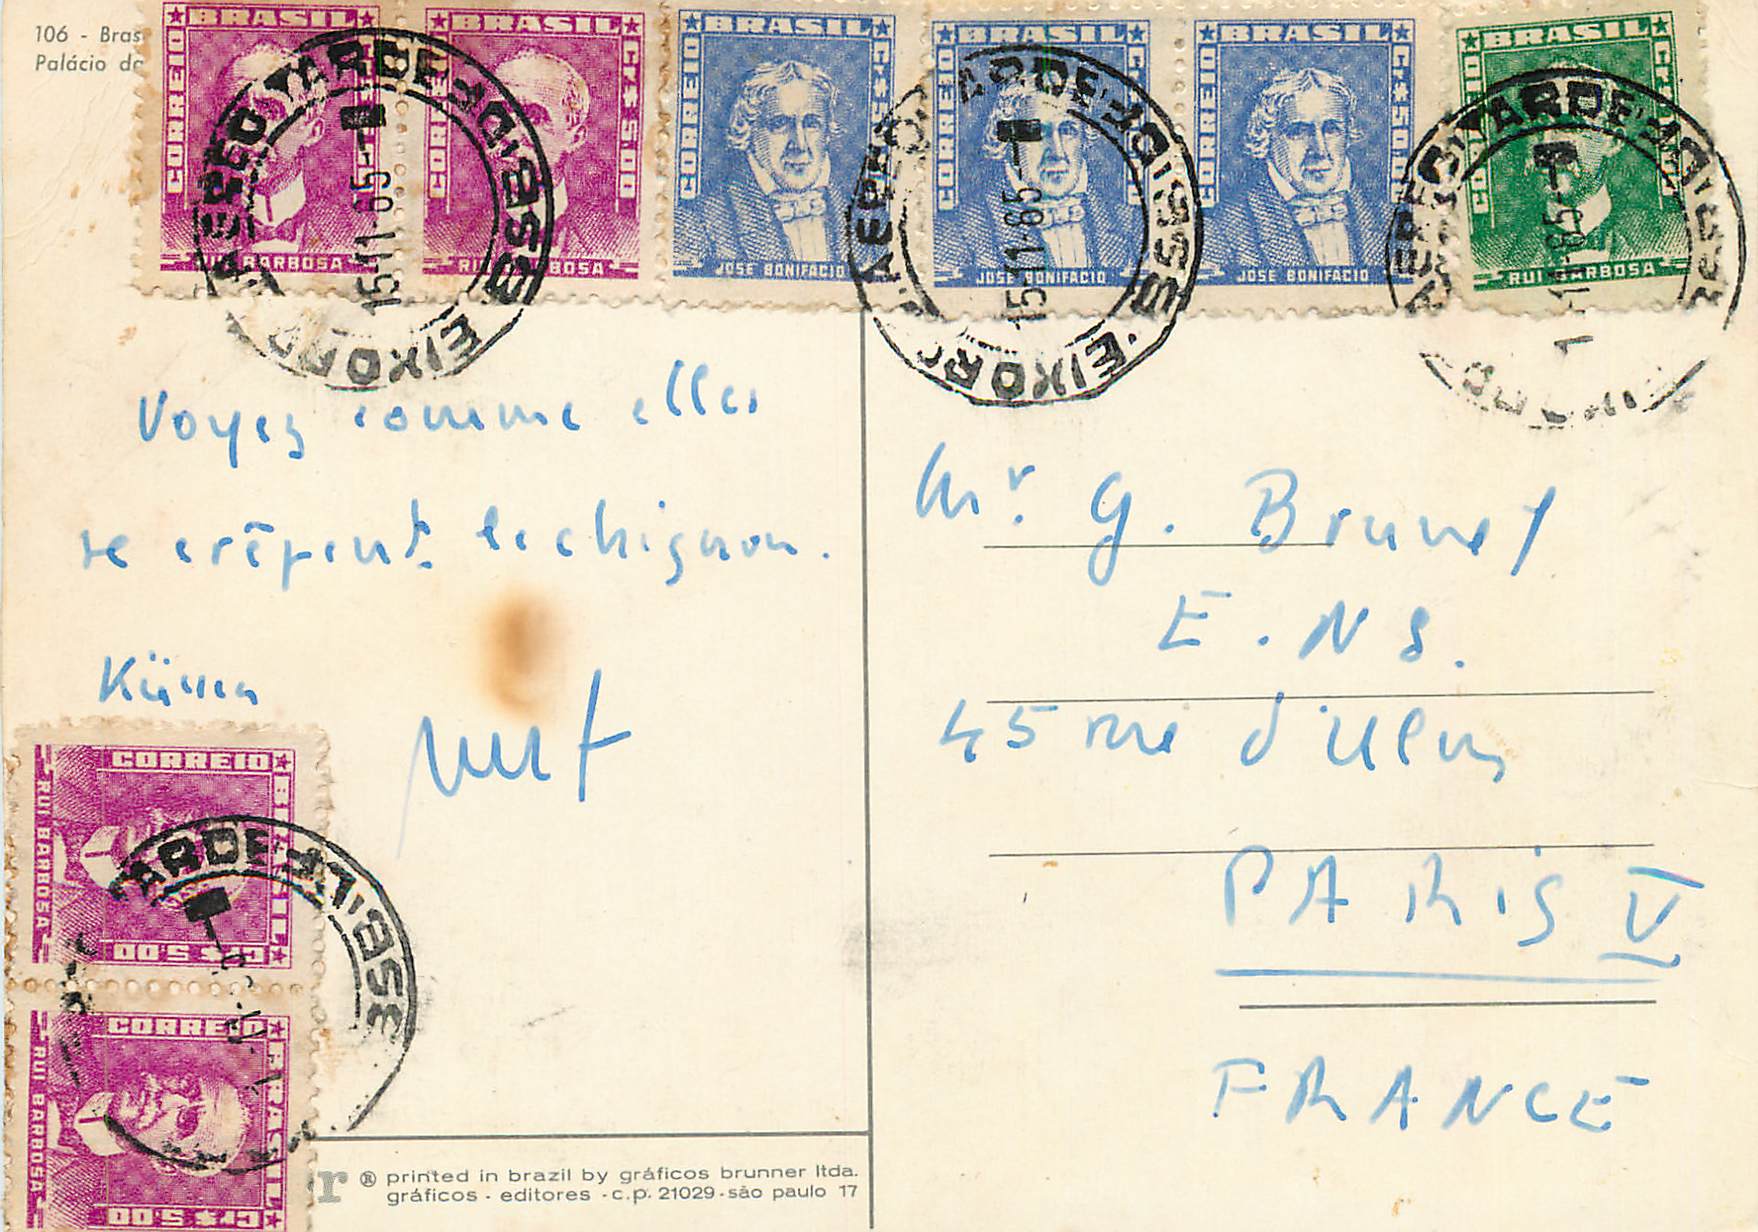 106 - Bras
Palácio da
BRASIL CORREIO Cr$ RUI BARBOSA
BRASIL CORREIO Cr$ 5.00 RUI BARBOSA
BRASIL CORREIO Cr$ 50 JOSÉ BONIFACIO
BRASIL CORREIO Cr$ 50 JOSÉ BONIFACIO
BRASIL CORREIO Cr$ 50 JOSÉ BONIFACIO
BRASIL Cr$ RUI BARBOSA
AEREO.TARDE
EIXORO
15-11-65-
AEREO TARDE
EIXORO
15-11-65-
TARDE
Voyez comme elles
se crêpent le chignon.
Küssen
Mr. G. Brunet
E.N.S.
45 rue d'Ulm
PARIS V
FRANCE
CORREIO BRASIL Cr$ 5.00 RUI BARBOSA
TARDE
CORREIO BRASIL Cr$ 5.00 RUI BARBOSA
r ® printed in brazil by gráficos brunner ltda.
gráficos - editores - c.p. 21029 - são paulo 17